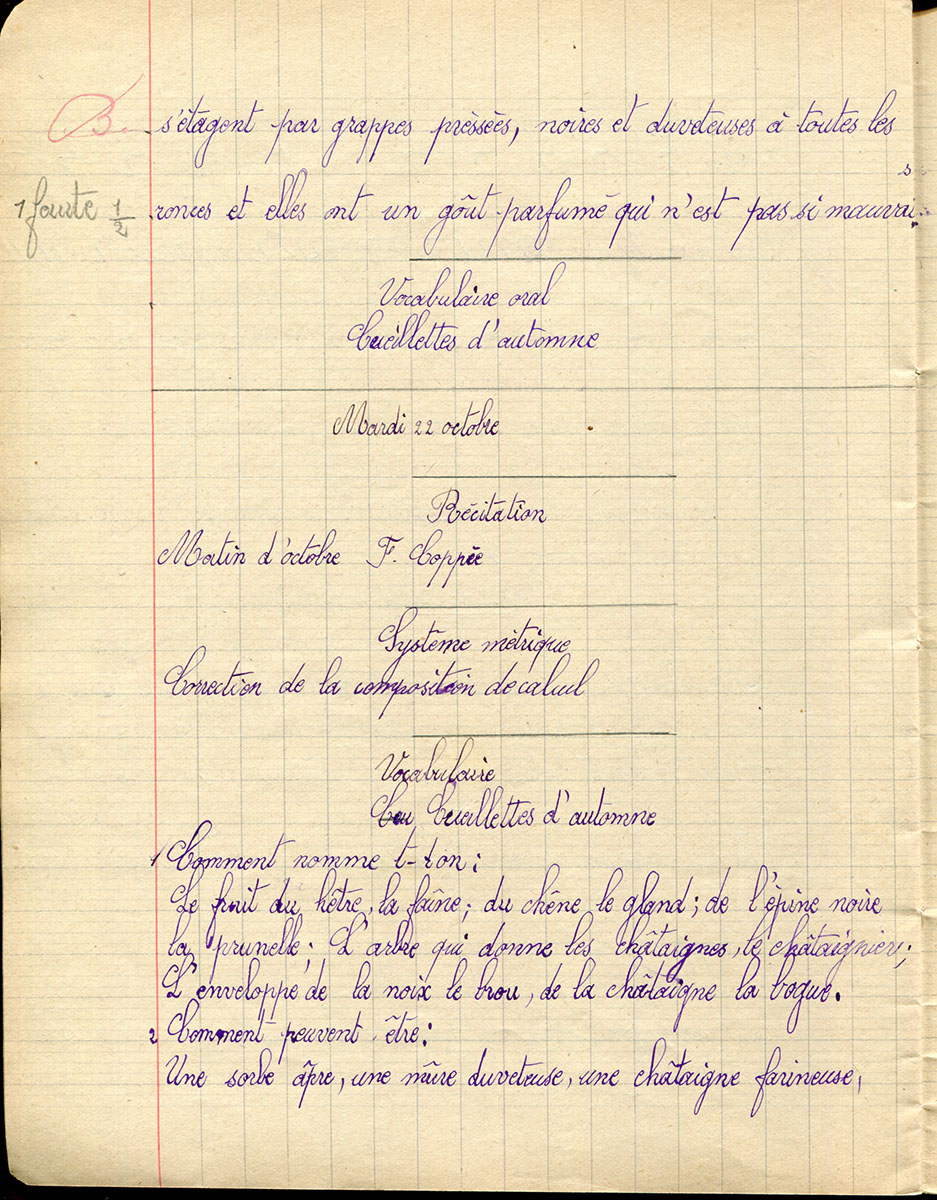 B. s'étagent par grappes préssées, noires et duveteuses à toutes les
s
1 faute 1/2 ronces et elles ont un goût parfumé qui n'est pas si mauvai.
Vocabulaire oral
Cueillettes d'automne
Mardi 22 octobre
Récitation
Matin d'octobre F. Coppée
Système métrique
Correction de la composition de calcul
Vocabulaire
Cueillettes d'automne
1 Comment nomme t-ton:
Le fruit du hêtre, la faîne; du chêne le gland; de l'épine noire
la prunelle; L'arbre qui donne les châtaignes, le châtaigniers;
L'enveloppe de la noix le brou, de la châtaigne la bogue.
2 Comment peuvent être:
Une sorbe âpre, une mûre duveteuse, une châtaigne farineuse,